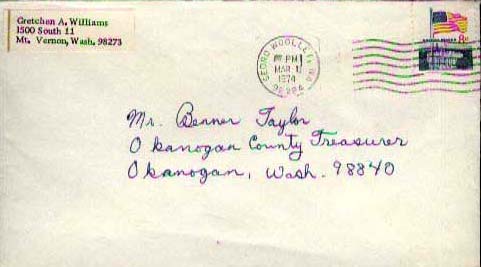 Gretchen A. Williams
1500 South 11
Mt. Vernon, Wash. 98273
SEDRO WOOLLEY, WA
PM
MAR 1
1974
98284
8c
Mr. Benner Taylor
Okanogan County Treasurer
Okanogan, Wash. 98840